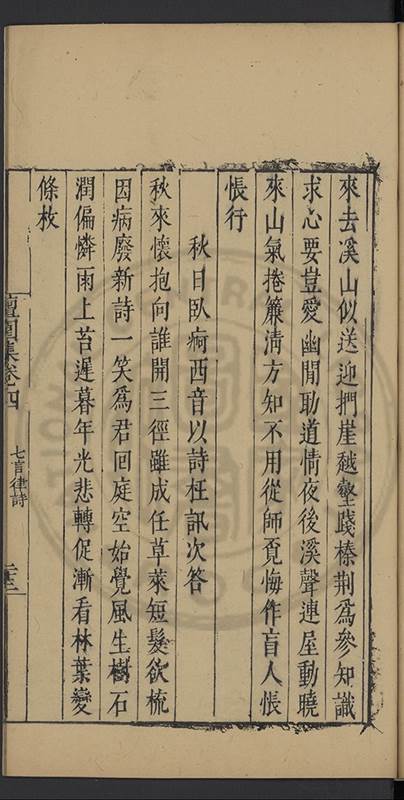 來去溪山似送迎捫崖越壑踐榛荆為參知識
求心要豈愛幽閒助道情夜後溪聲連屋動曉
來山氣捲簾清方知不用從師覔悔作盲人悵
悵行
秋日臥痾西音以詩枉訊次答
秋來懷抱向誰開三徑雖成任草萊短髮欲梳
因病廢新詩一笑為君回庭空始覺風生樹石
潤偏憐雨上苔遲暮年光悲轉促漸看林葉變
條枚
園集卷四
七言律詩